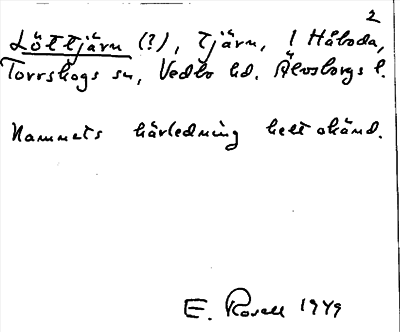 2
Löttjärn (?), tjärn, i Håboda,
Torrskogs sn, Vedbo hd. Älvsborgs l.
Namnets härledning helt okänd.
E. Rosell 1949